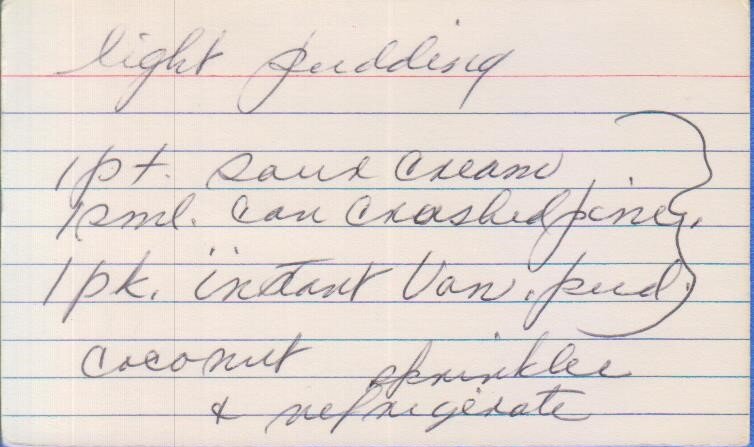 light pudding
1 pt. sour cream
1 sml. can crushed pine.
1 pk. instant Van. pud.
coconut sprinkle
& refrigerate